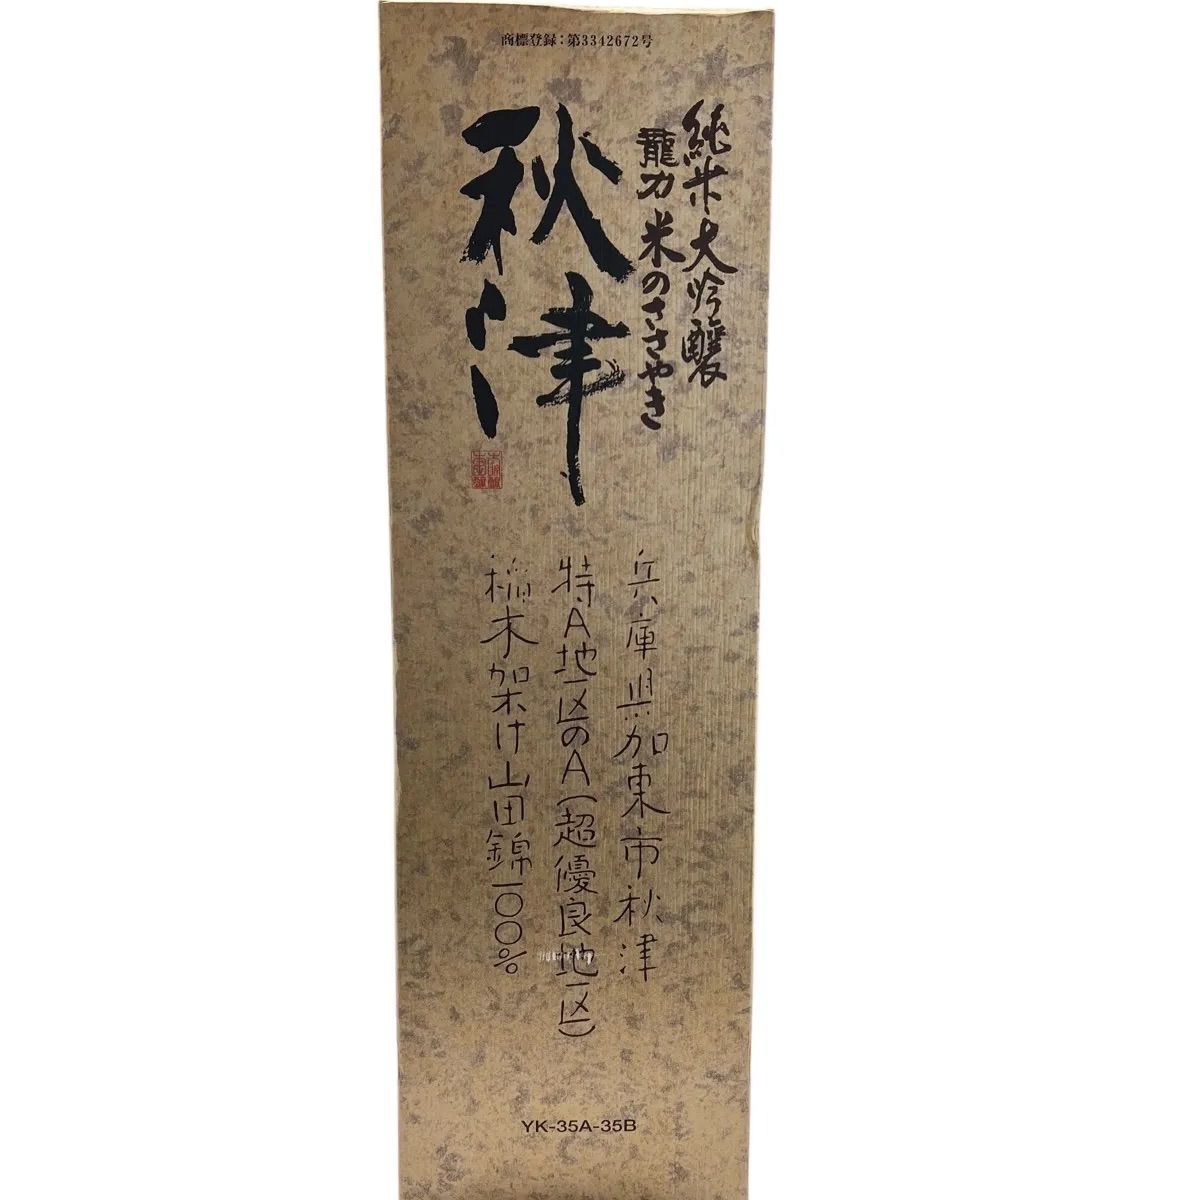 商標登録：第3342672号
純米大吟醸
龍力 米のささやき
秋津
兵庫県加東市秋津
特A地区のA（超優良地区）
稲木架け山田錦一〇〇%
YK-35A-35B